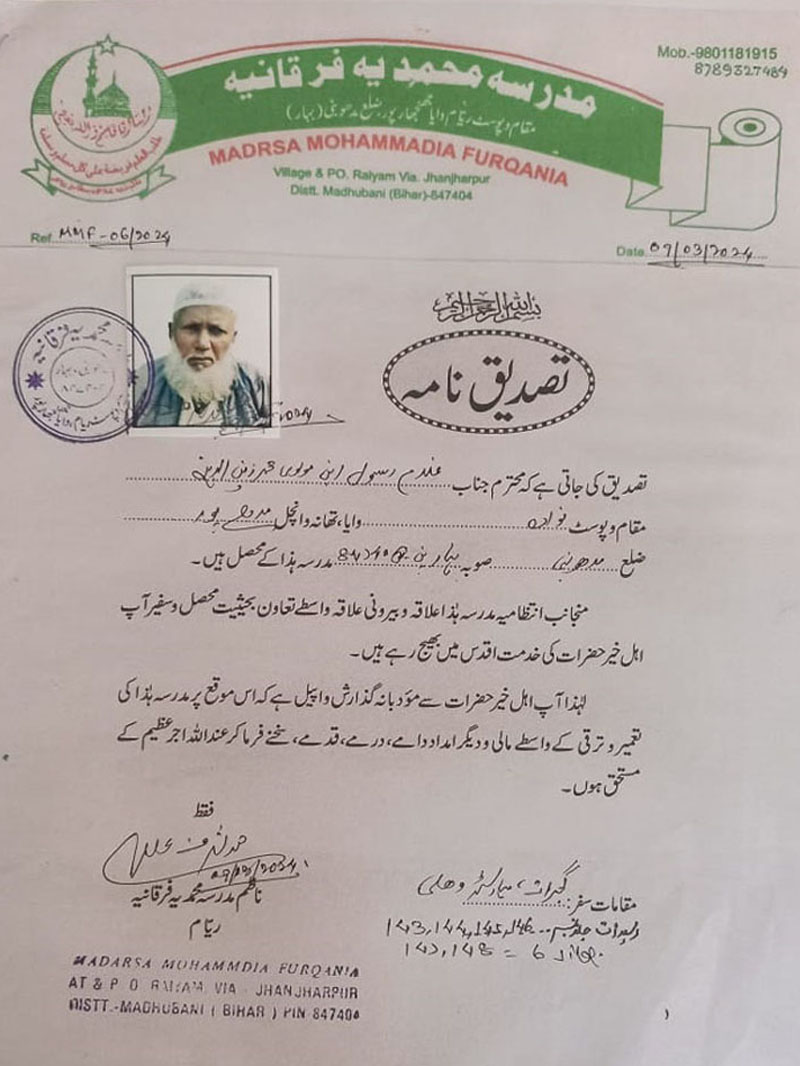 Mob.-9801181915
8789327484
مدرسہ محمدیہ فرقانیہ
مقام و پوسٹ ریّام وایا جھنجھارپور، ضلع مدھوبنی (بہار)
MADRSA MOHAMMADIA FURQANIA
Village & PO. Raiyam Via. Jhanjharpur
Distt. Madhubani (Bihar)-847404
Ref. MMF-06/2024
Date 07/03/2024
بسم اللہ الرحمن الرحیم
تصدیق نامہ
تصدیق کی جاتی ہے کہ محترم جناب غلام رسول ابن مولوی
مقام و پوسٹ نوادہ وایا، تھانہ وانچل
ضلع مدھوبنی صوبہ بہار مدرسہ ھذا کے محصل ہیں۔
منجانب انتظامیہ مدرسہ ہٰذا علاقہ و بیرونی علاقہ واسطے تعاون بحیثیت محصل و سفیر آپ
اہل خیر حضرات کی خدمت اقدس میں بھیج رہے ہیں۔
لہٰذا آپ اہل خیر حضرات سے مؤدبانہ گذارش و اپیل ہے کہ اس موقع پر مدرسہ ہٰذا کی
تعمیر و ترقی کے واسطے مالی و دیگر امداد دامے، درمے، قدمے، سخنے فرما کر عنداللہ اجر عظیم کے
مستحق ہوں۔
فقط
ناظم مدرسہ محمدیہ فرقانیہ
ریّام
مقامات سفر: گجرات،
143,144,145,146
147,148 = 6
MADARSA MOHAMMDIA FURQANIA
AT & P. O. RAIYAM, VIA - JHANJHARPUR
DISTT.-MADHUBANI ( BIHAR ) PIN 847404